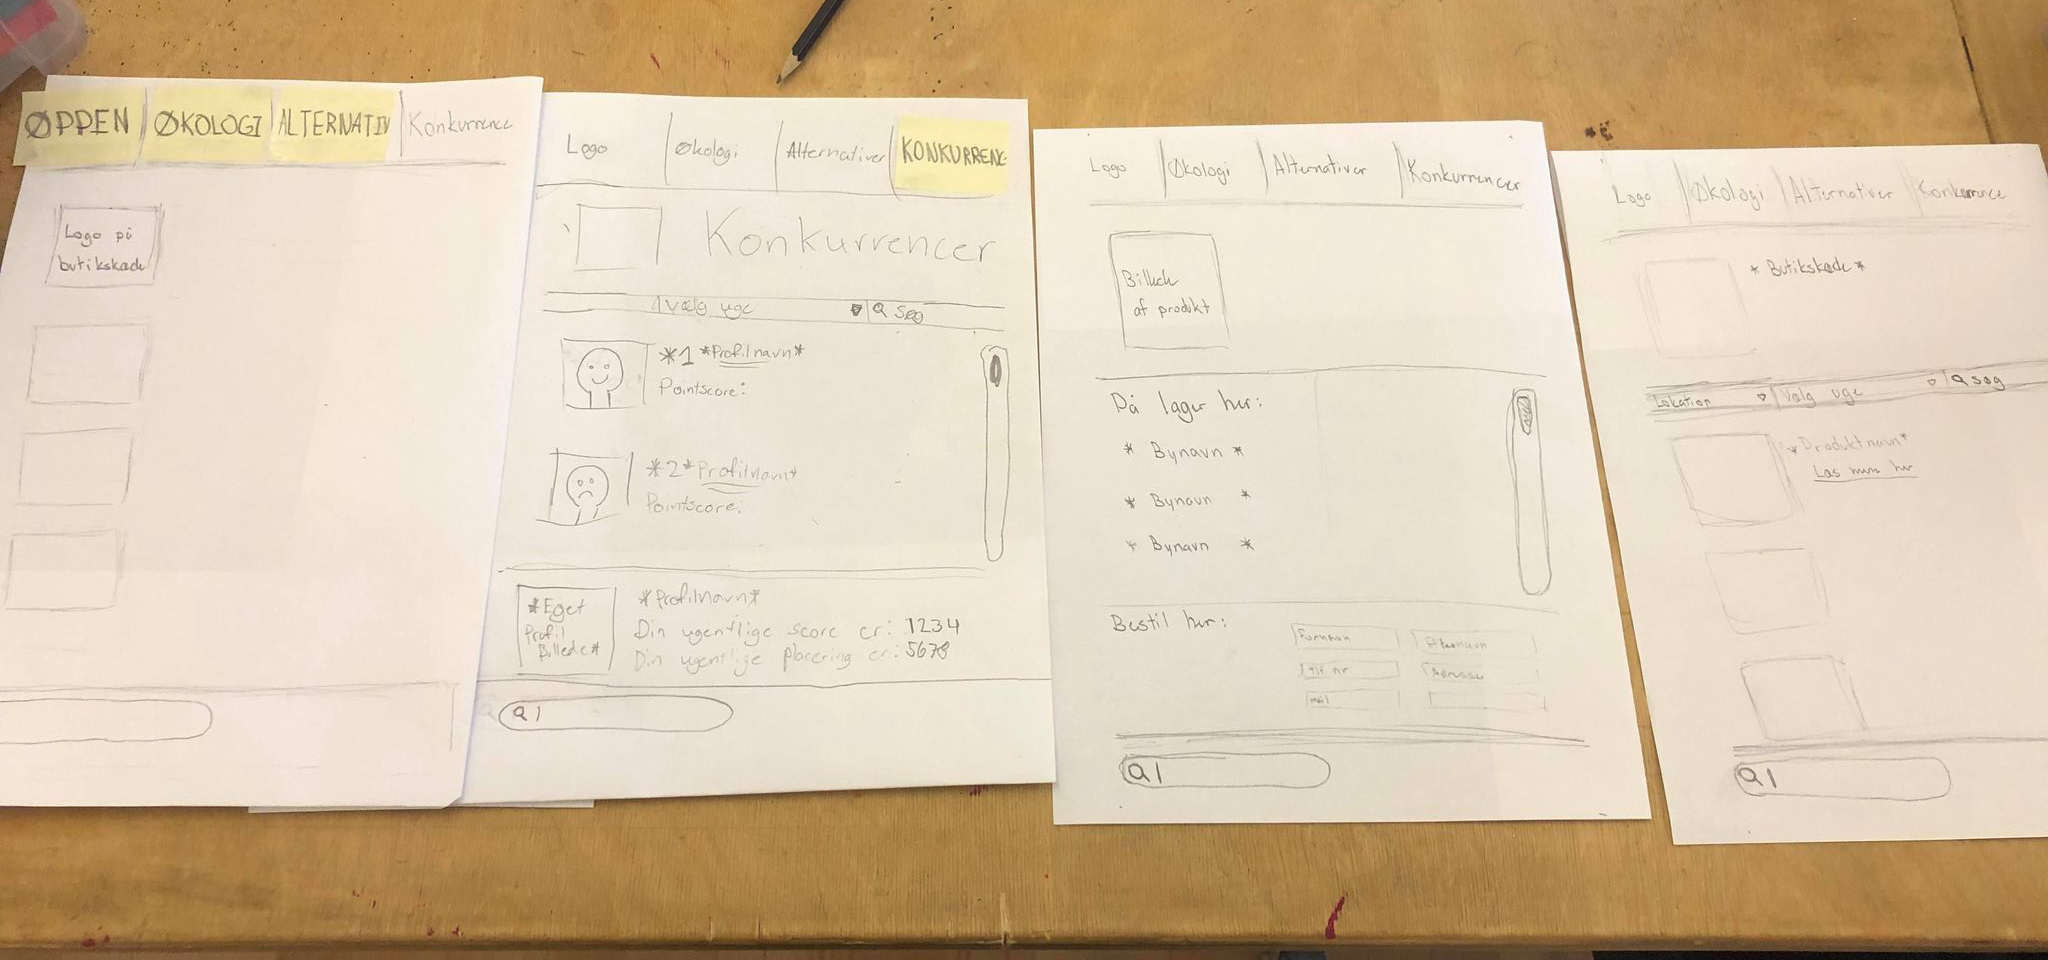 ØPPEN ØKOLOGI ALTERNATIV Konkurrence
Logo på
butikskæde
Logo Økologi Alternativer KONKURRENC
Konkurrencer
Vælg uge søg
*1 *Profilnavn*
Pointscore:
*2*Profilnavn*
Pointscore:
*Eget
Profil
Billede*
*Profilnavn*
Din ugentlige score er: 1234
Din ugentlige placering er: 5678
Logo Økologi Alternativer Konkurrencer
Billede
af produkt
På lager her:
* Bynavn *
* Bynavn *
* Bynavn *
Bestil her:
Fornavn Efternavn
tlf nr Adresse
mail
Logo Økologi Alternativer Konkurrence
* Butikskæde *
Lokation Vælg uge søg
*Produktnavn*
Læs mere her